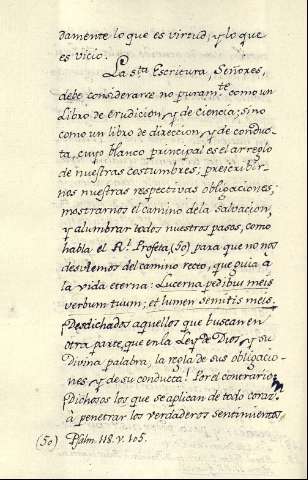 damente lo que es virtud, y lo que
es vicio.
La s.ta Escritura, Señores,
debe considerarse no puram.te como un
Libro de erudicion, y de ciencia; sino
como un libro de direccion, y de conduc-
ta, cuyo blanco principal es el arreglo
de nuestras costumbres; prescribir-
nos nuestras respectivas obligaciones;
mostrarnos el camino dela salvacion,
y alumbrar todos nuestros pasos, como
habla el R.l Profeta, (50) para que no nos
desviemos del camino recto, que guia à
la vida eterna: Lucerna pedibus meis
verbum tuum; et lumen semitis meis.
Desdichados aquellos que buscan en
otra parte, que en la Ley de Dios, y su
Divina palabra, la regla de sus obligacio-
nes, y de su conducta! Por el contrario
Dichosos los que se aplican de todo coraz.n
à penetrar los verdaderos sentimientos
(50) Psalm. 118. v. 105.